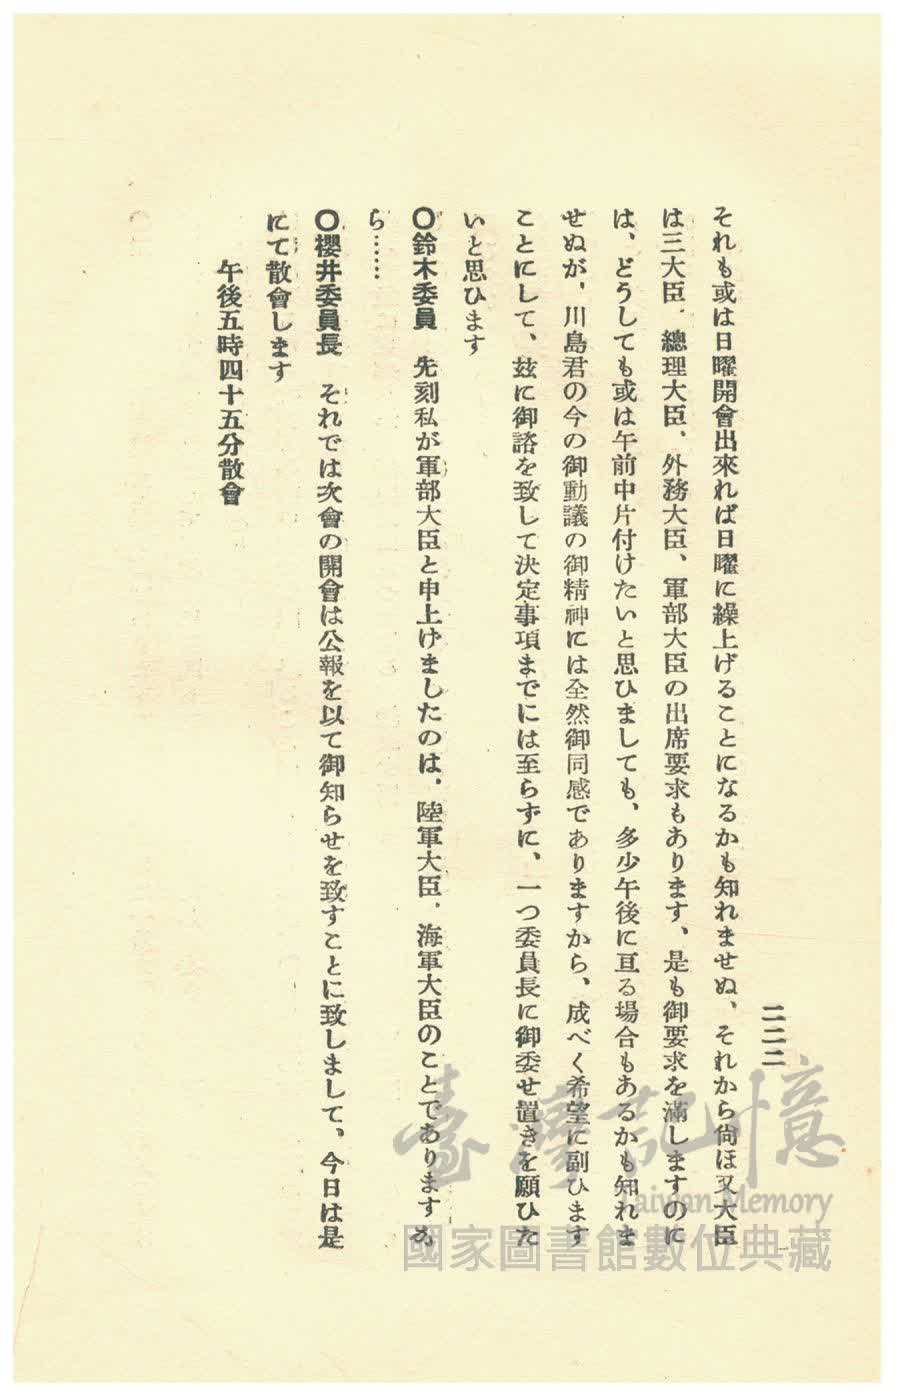 二二二
それも或は日曜開會出來れば日曜に繰上げることになるかも知れませぬ、それから尙ほ又大臣
は三大臣、總理大臣、外務大臣、軍部大臣の出席要求もあります、是も御要求を滿しますのに
は、どうしても或は午前中片付けたいと思ひましても、多少午後に亘る場合もあるかも知れま
せぬが、川島君の今の御動議の御精神には全然御同感でありますから、成べく希望に副ひます
ことにして、玆に御諮を致して決定事項までには至らずに、一つ委員長に御委せ置きを願ひた
いと思ひます
〇鈴木委員　先刻私が軍部大臣と申上げましたのは、陸軍大臣、海軍大臣のことでありますか
ら……
〇櫻井委員長　それでは次會の開會は公報を以て御知らせを致すことに致しまして、今日は是
にて散會します
午後五時四十五分散會
臺灣記憶
Taiwan Memory
國家圖書館數位典藏